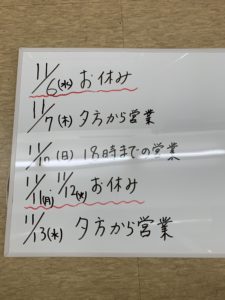 11/6(水) お休み
11/7(木) 夕方から営業
11/10(日) 18時までの営業
11/11(月) 11/12(火) お休み
11/13(水) 夕方から営業